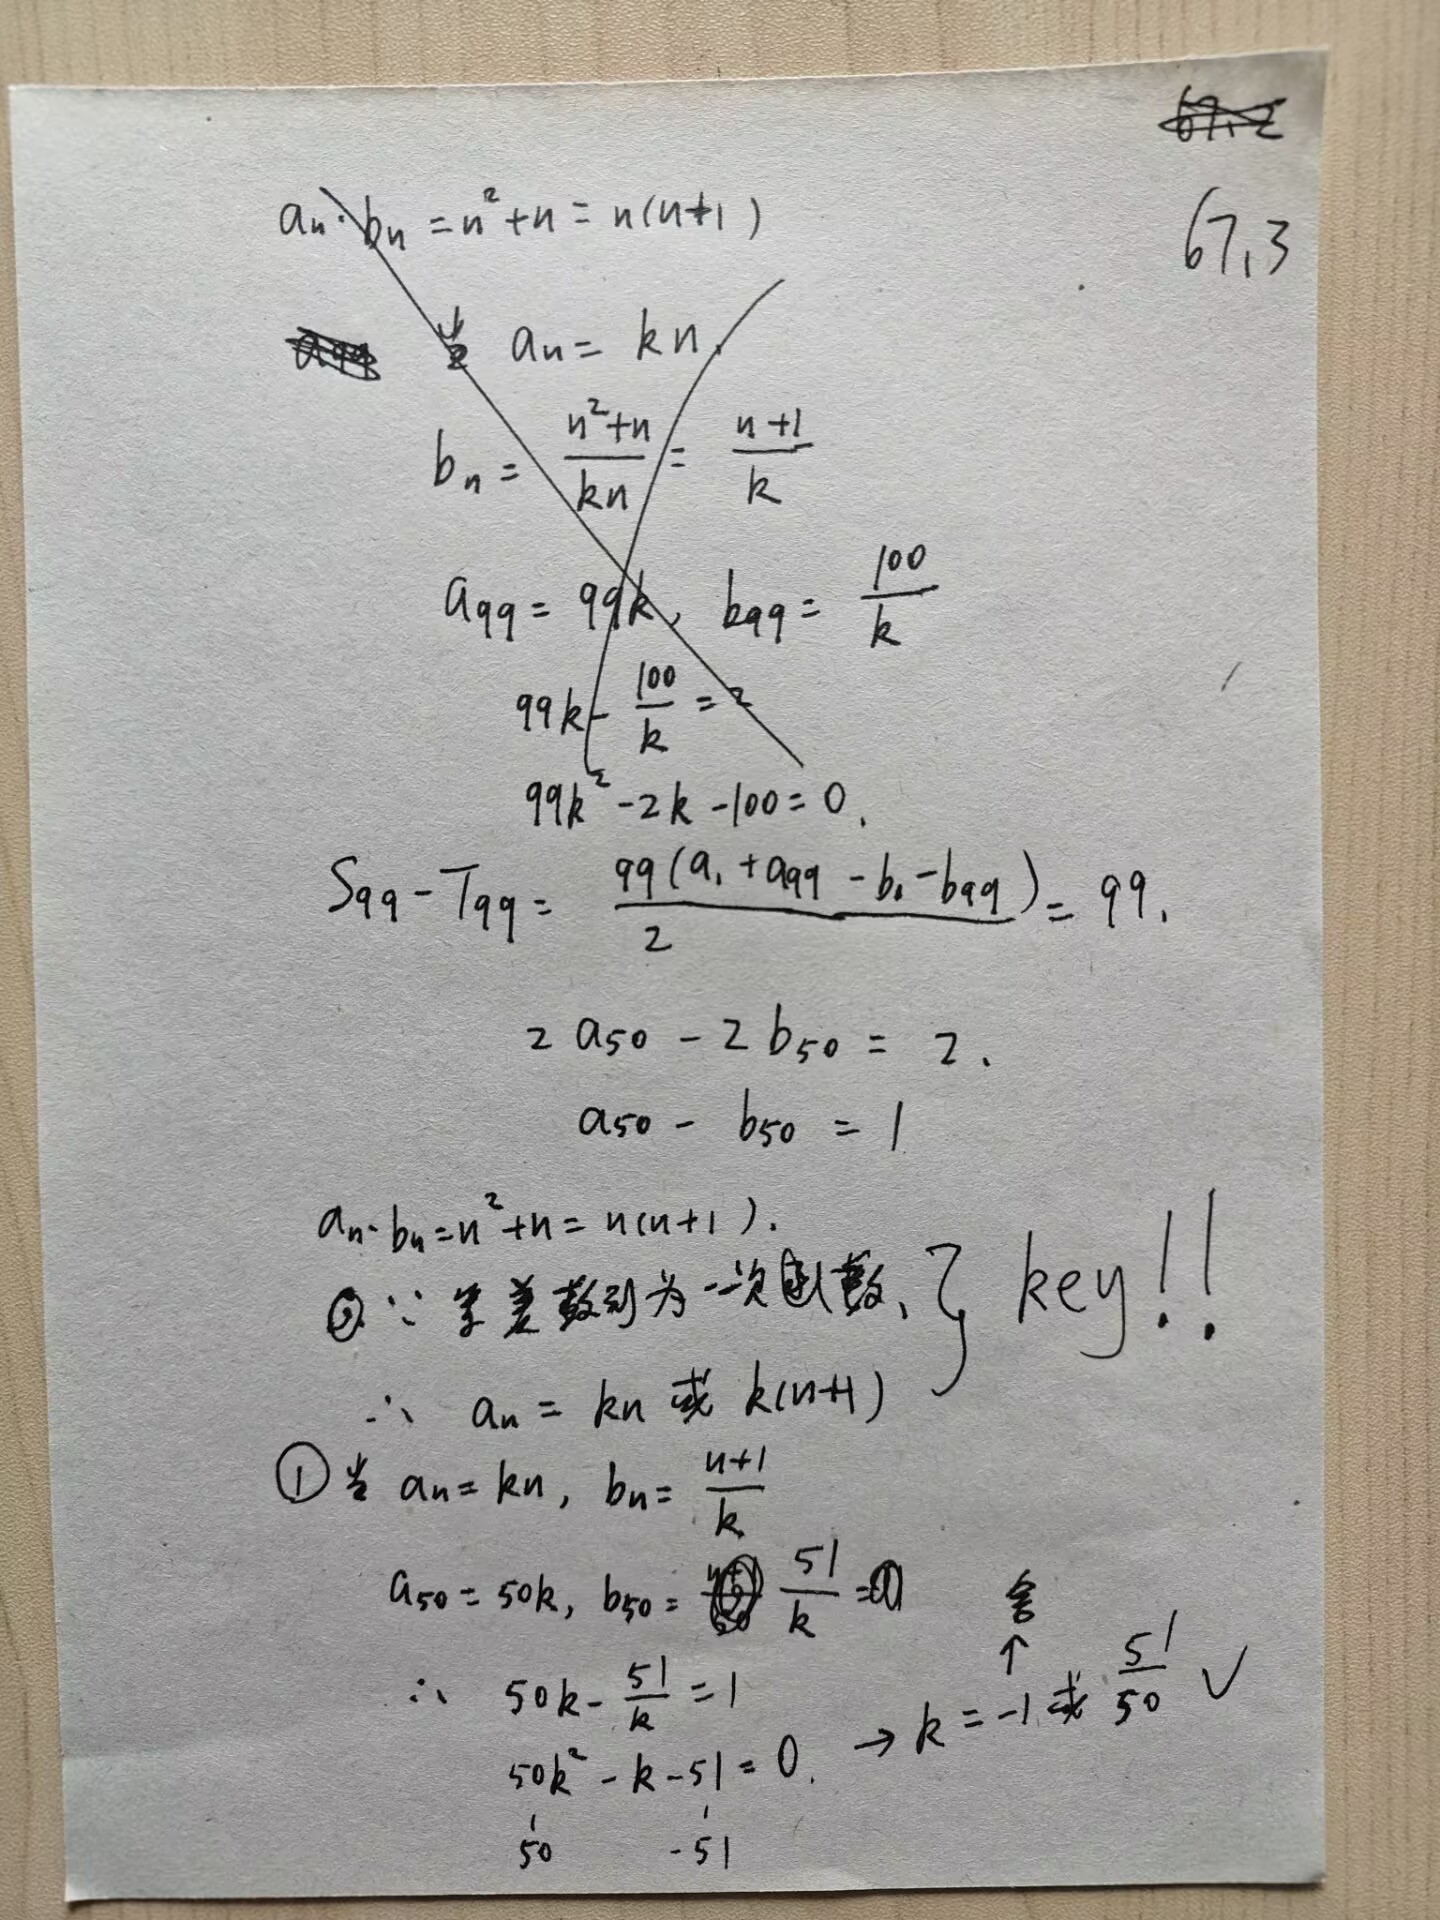 67,3
aₙ·bₙ=n²+n=n(n+1)
aₙ= kn,
bₙ= (n²+n)/(kn) = (n+1)/k
a₉₉= 99k, b₉₉= 100/k
99k - 100/k = 2
99k²-2k-100=0.
S₉₉-T₉₉= 99(a₁+a₉₉-b₁-b₉₉)/2 = 99.
2a₅₀-2b₅₀= 2.
a₅₀- b₅₀ = 1
aₙ·bₙ=n²+n=n(n+1).
∵ 等差数列为一次函数, } key!!
∴ aₙ= kn 或 k(n+1)
① 当 aₙ=kn, bₙ= (n+1)/k
a₅₀=50k, b₅₀= 51/k
∴ 50k- 51/k =1
舍
↑
50k²-k-51=0. → k=-1 或 51/50 ✓
50 -51